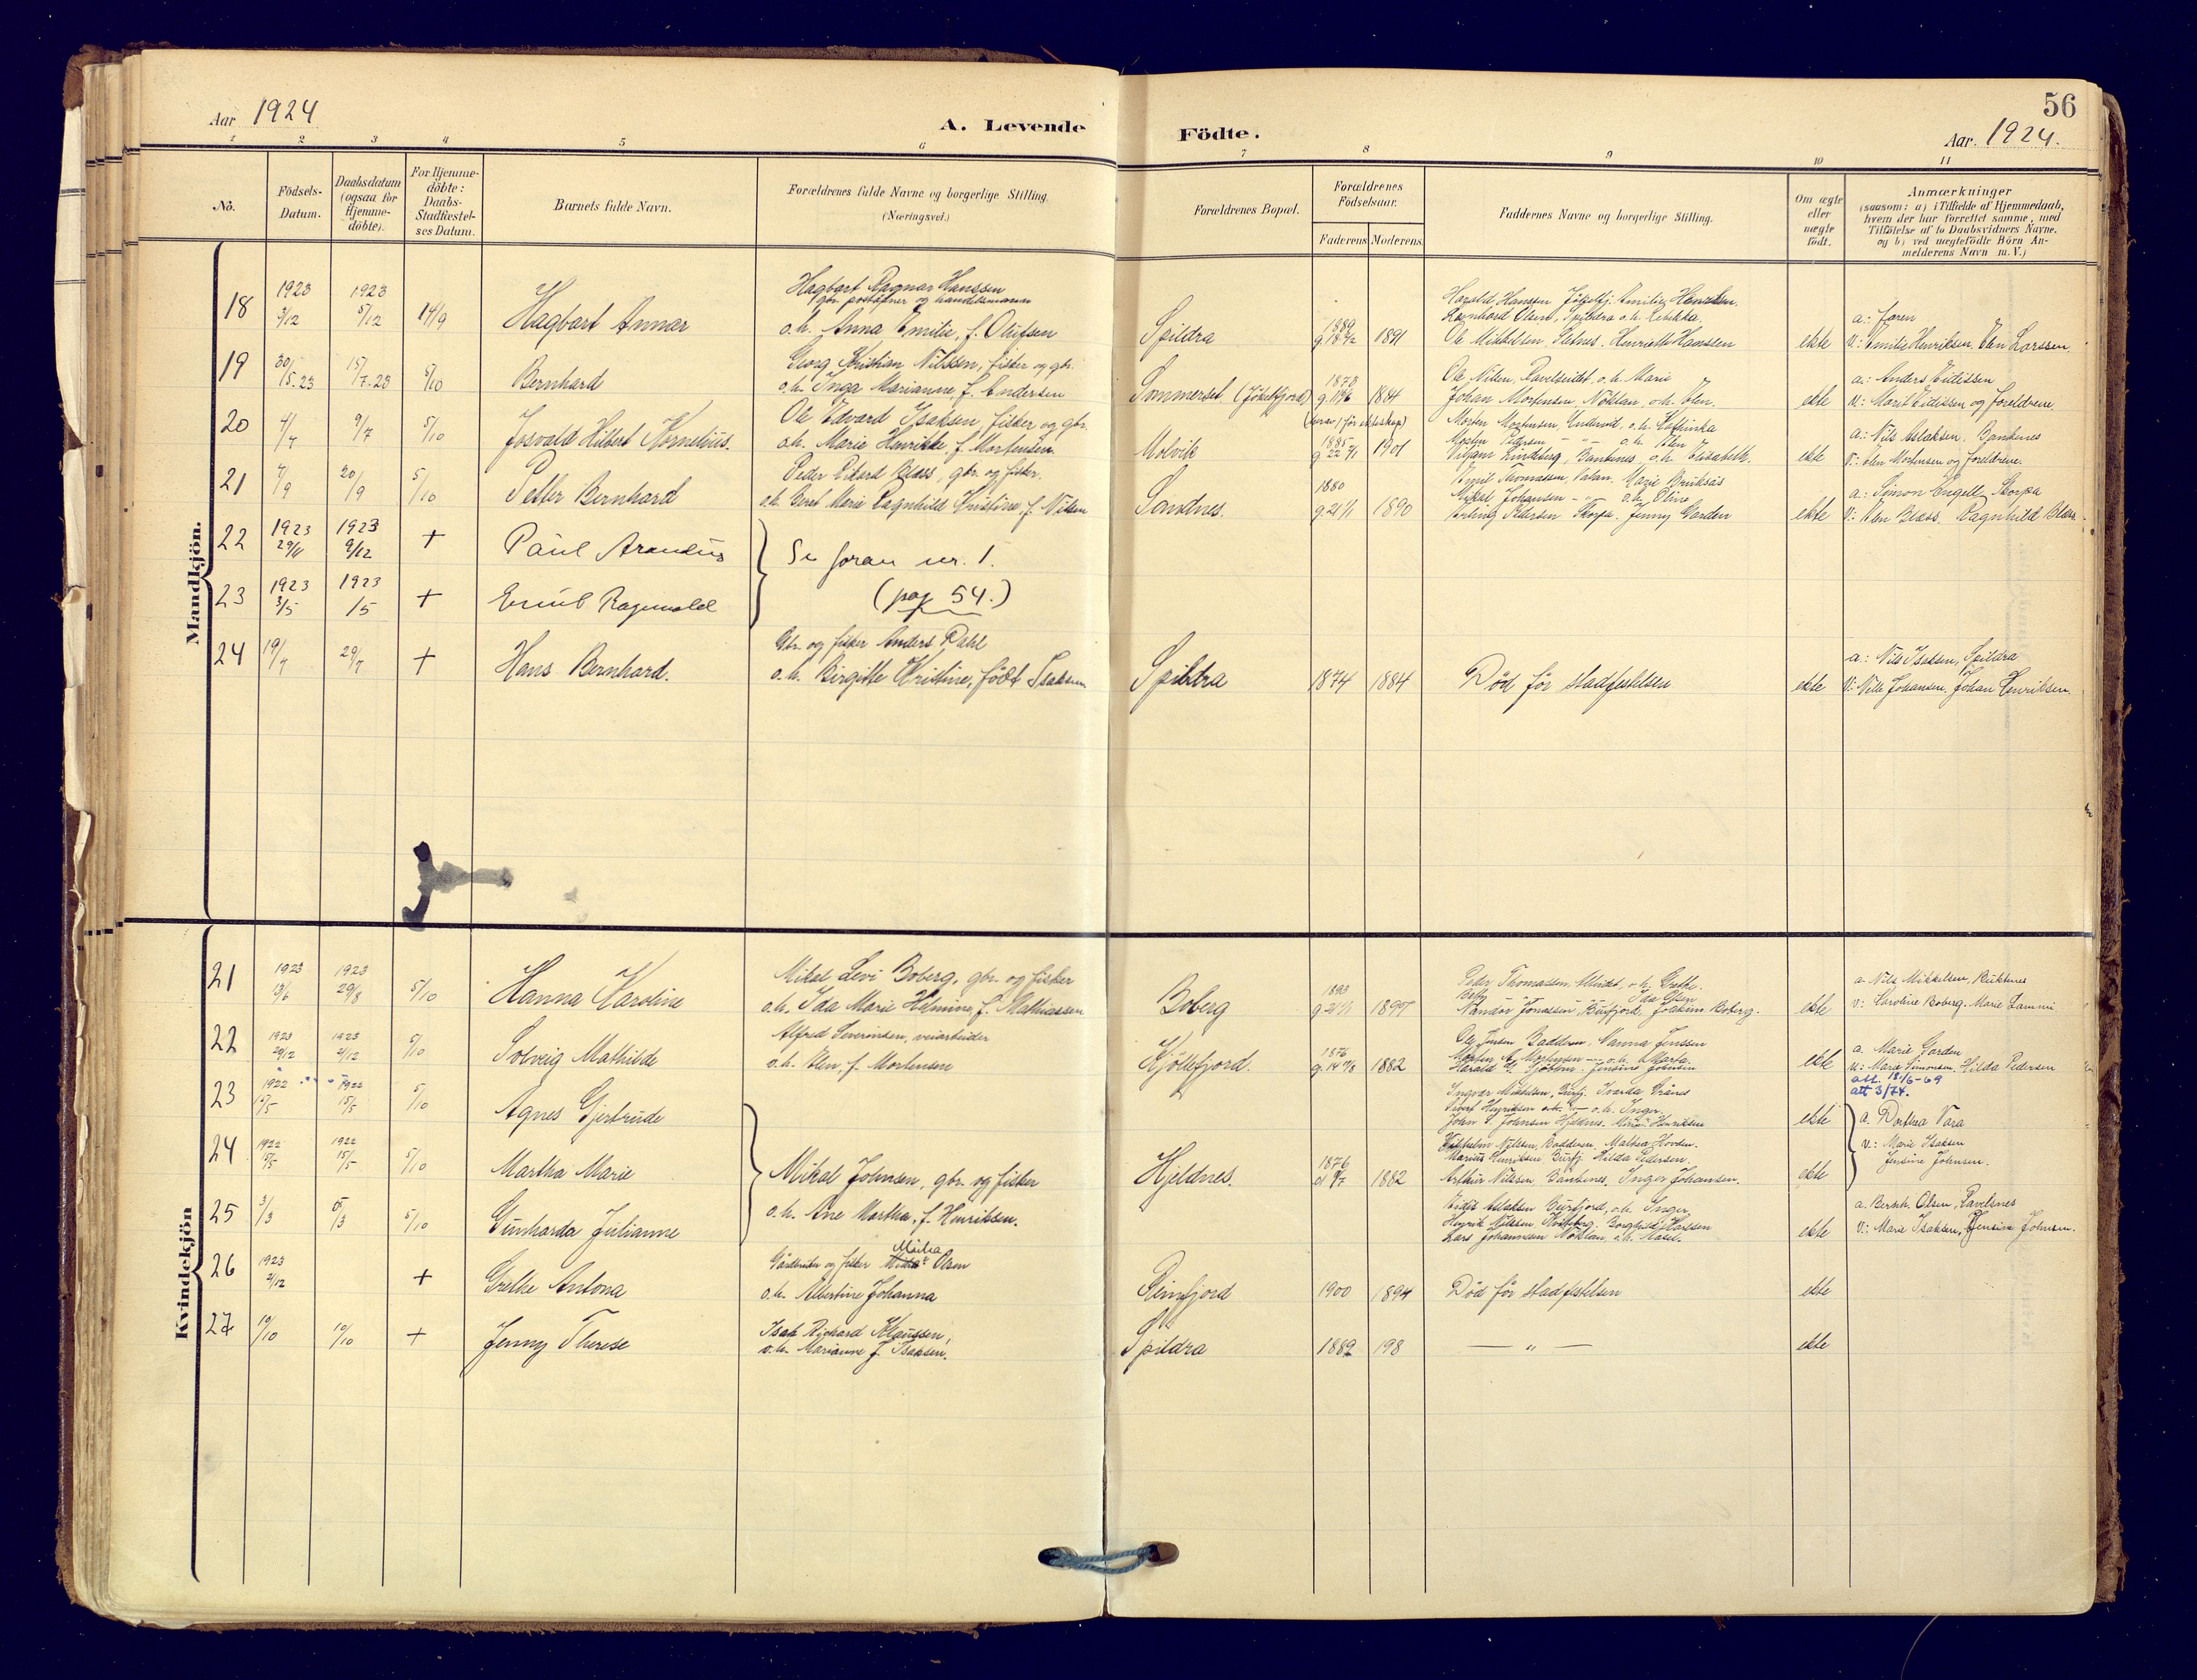 Aar 1924
A. Levende
Födte.
56
Aar. 1924.
1 2 3 4 5 6 7 8 9 10 11
No.
Födsels-
Datum.
Daabsdatum
(ogsaa for
Hjemme-
döbte).
For Hjemme-
döbte:
Daabs-
Stadfæstel-
ses Datum.
Barnets fulde Navn.
Forældrenes fulde Navne og borgerlige Stilling.
(Næringsvei.)
Forældrenes Bopæl.
Forældrenes
Födselsaar.
Faderens Moderens
Faddernes Navne og borgerlige Stilling.
Om ægte
eller
uægte
födt.
Anmærkninger
(saasom: a) i Tilfælde af Hjemmedaab,
hvem der har forrettet samme, med
Tilföielse af to Daabsvidners Navne.
og b) ved uægtefödte Börn An-
melderens Navn m. V.)
Mandkjön.
18
1923
3/12
1923
5/12
14/9
Hagbart Annar
Hagbart Ragnar Hanssen
gbr. poståpner og handelsmann
o.h. Anna Emilie, f. Olufsen
Spildra
1889
1891
Harald Hanssen Jökelfj. Emilie Hansen.
Olsen, Spildra o.h. Rebekka
Ole Mikkelsen, Sletnes. Henriette Hanssen
ekte
a.: faren
V.: Emilie Henriksen. Elen Larssen
19
30/5.23
15/7.23
5/10
Bernhard
Georg Kristian Nilssen, fisker og gbr.
o.h. Inga Marianne, f. Andersen
Sommerset (Jökelfjord)
1878
1884
Ole Nilsen, Ravelseidet, o.h. Marie
Johan Mortensen, Nöklan, o.h. Elen.
ekte
a.: Anders Eidissen
V.: Marit Eidissen og foreldrene.
20
4/7
9/7
5/10
Josvald Hilbert Kornelius.
Ole Edvard Isaksen, fisker og gbr.
o.h. Marie Henrikke, f. Mortensen.
Molvik
1885
1901
Morten Mortensen, Undereid, o.h. Kathinka
Pedersen - " - o.h. Elen
Lindberg, Bankenes, o.h. Elisabeth.
ekte
a.: Nils Aslaksen, Bankenes
V.: Elen Mortensen og foreldrene.
21
7/9
20/9
5/10
Petter Bernhard
Peder Rikard Blæss, gbr. og fisker.
o.h. Beret Marie Ragnhild Kristine, f. Nilsen
Sandnes.
1880
g. 21/1
1890
Emil Thomassen, Valan. Marie Bruksås
Mikal Johansen - " - o.h. Oline
Erling Pedersen Skorpa. Jenny Garden
ekte
a.: Simon Engell Skorpa
V: Elen Blæss. Ragnhild Blæss
22
1923
29/11
1923
9/12
+
Paul Arandus
Se foran nr. 1.
23
1923
3/5
1923
/5
+
Emil Ragnvald
(pag 54.)
24
19/7
29/7
+
Hans Bernhard.
Gbr. og fisker Anders Dahl
o.h. Birgitte Kristine, födt Isaksen
Spildra
1874
1884
Död för stadfestelsen
ekte
a.: Nils Isaksen, Spildra
V.: Nille Johansen, Johan Henriksen.
Kvindekjön
21
1923
13/6
1923
29/8
5/10
Hanna Karoline
Mikal Levi Boberg, gbr. og fisker
o.h. Ida Marie Helmine, f. Mathiassen
Boberg
1893
g. 21/1
Peder Thomassen, o.h. Grethe.
Ida Olsen
Nandor Jonassen, Burfjord, Joakim Boberg.
ekte
a. Nils Mikkelsen, Buktenes
v: Karoline Boberg. Marie Lammi
22
1923
29/12
1923
2/12
5/10
Solveig Mathilde
Alfred Severinsen, veiarbeider
o.h. Elen, f. Mortensen
Kjöllefjord.
1876
1882
Ole Jensen Badderen, Nanna Jenssen
Morten A. Mortensen - o.h. Marta.
Harald
ekte
a. Marie Garden
v.: Marie Simonsen. Hilda Pedersen
att. 18/6-69
att 3/74.
23
1922
15/5
5/10
Agnes Gjertrude
Ingvar Mikkelsen, Burfj.
Henriksen o.h. Inger
Johnsen Hjeldnes. Henriksen
ekte
a. Dorthea Vara
v.: Marie Isaksen
Jensine Johnsen.
24
1922
5/5
1922
15/5
5/10
Martha Marie
Mikal Johnsen, gbr. og fisker
o.h. Ane Martha, f. Henriksen.
Hjeldnes.
1876
1882
Vilhelm Nilssen, Badderen, Mathea Hovden.
Marius Henriksen Burfj. Hilda Pedersen.
Arthur Nilssen, Bankenes, Inger Johansen.
ekte
25
3/3
/3
5/10
Gunharda Julianne
Aslaksen Burfjord, o.h. Inger,
Henrik Nilssen, Borghild Hanssen
Lars Johannesen Nöklan, o.h.
ekte
a. Bernh. Olsen, Ravelsnes
V.: Marie Isaksen, Jensine Johnsen.
26
1923
2/12
+
Grethe Antona
Gårdbruker og fisker Olsen
o.h. Albertine Johanna
Reinfjord
1900
1894
Död för stadfestelsen
ekte
27
10/10
10/10
+
Jenny Therese
Isak Richard Klaussen,
o.h. Marianne f. Isaksen.
Spildra
1889
198
— " —
ekte